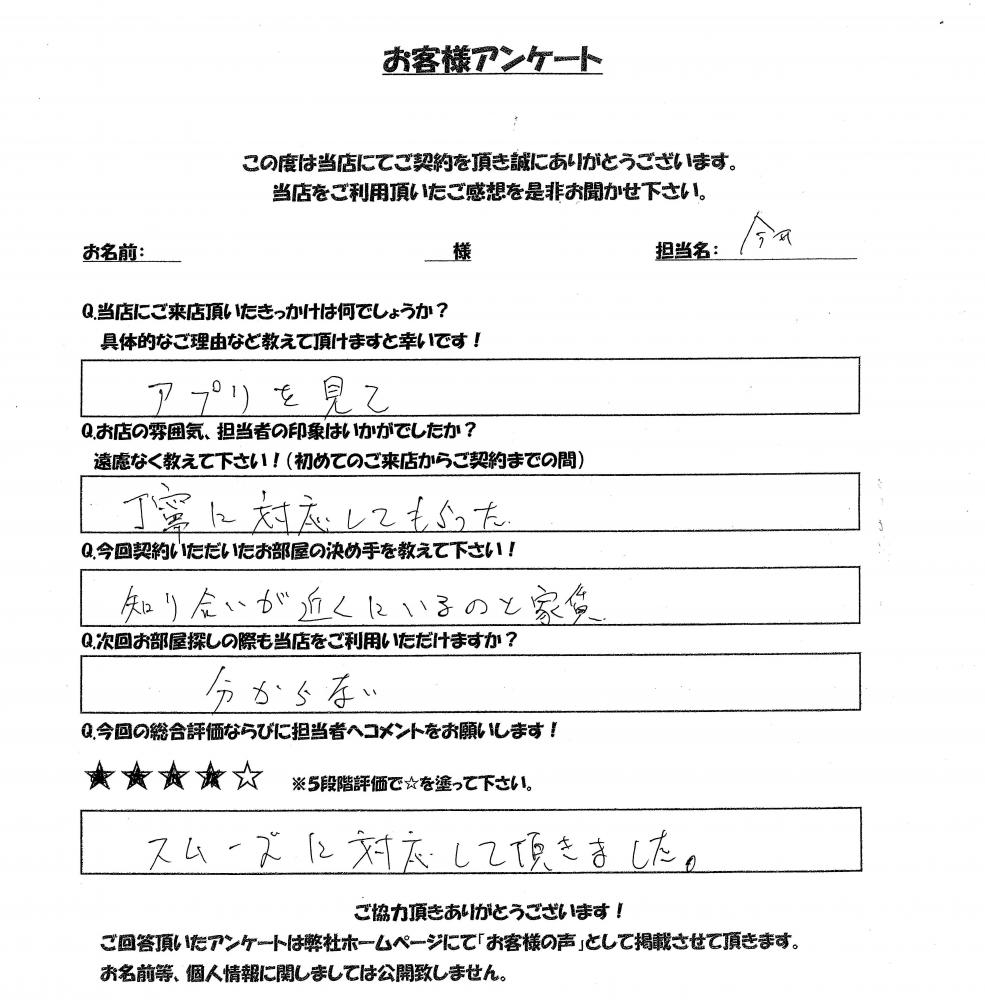 お客様アンケート
この度は当店にてご契約を頂き誠にありがとうございます。
当店をご利用頂いたご感想を是非お聞かせ下さい。
お名前： 様 担当名：
Q.当店にご来店頂いたきっかけは何でしょうか？
具体的なご理由など教えて頂けますと幸いです！
アプリを見て
Q.お店の雰囲気、担当者の印象はいかがでしたか？
遠慮なく教えて下さい！（初めてのご来店からご契約までの間）
丁寧に対応してもらった
Q.今回契約いただいたお部屋の決め手を教えて下さい！
知り合いが近くにいるのと家賃
Q.次回お部屋探しの際も当店をご利用いただけますか？
分からない
Q.今回の総合評価ならびに担当者へコメントをお願いします！
★★★★☆ ※5段階評価で☆を塗って下さい。
スムーズに対応して頂きました。
ご協力頂きありがとうございます！
ご回答頂いたアンケートは弊社ホームページにて「お客様の声」として掲載させて頂きます。
お名前等、個人情報に関しましては公開致しません。